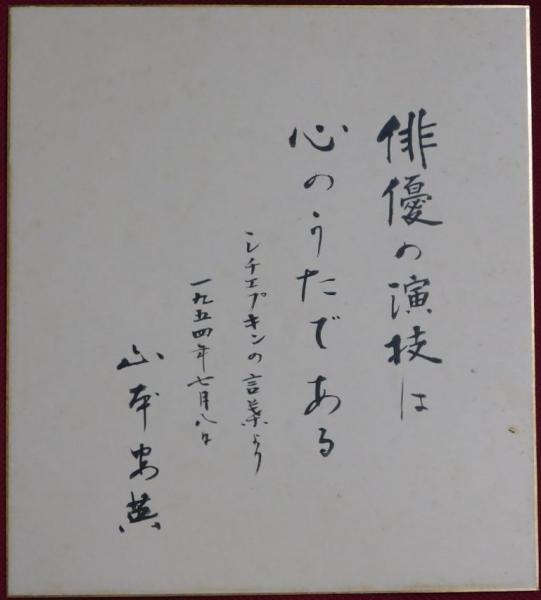 俳優の演技は
心のうたである
シチエプキンの言葉より
一九五四年七月八日
山本安英